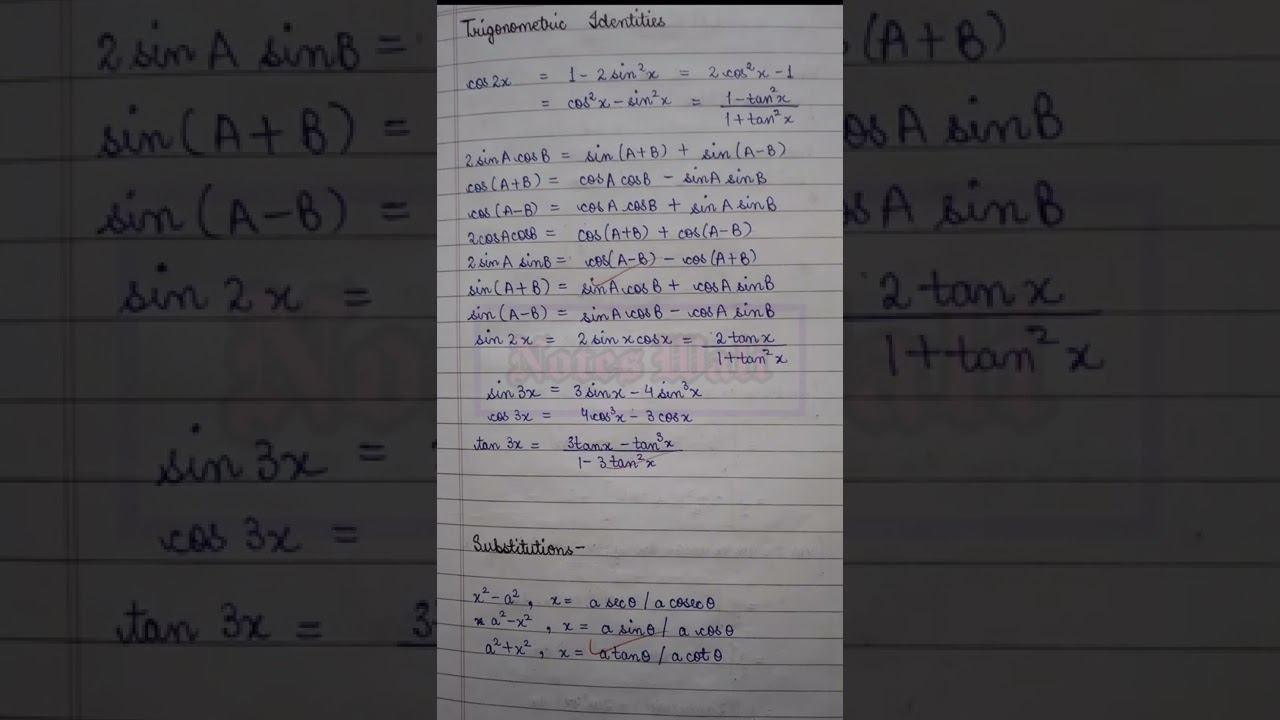 Trigonometric Identities
cos2x = 1 - 2 sin²x = 2 cos²x - 1
= cos²x - sin²x = (1 - tan²x)/(1 + tan²x)
2 sinA cosB = sin(A+B) + sin(A-B)
cos(A+B) = cosA cosB - sinA sinB
cos(A-B) = cosA cosB + sinA sinB
2cosAcosB = cos(A+B) + cos(A-B)
2 sinA sinB = cos(A-B) - cos(A+B)
sin(A+B) = sinA cosB + cosA sinB
sin(A-B) = sinA cosB - cosA sinB
sin 2x = 2 sinx cosx = 2 tanx/(1 + tan²x)
Notes Wali
sin 3x = 3 sinx - 4 sin³x
cos 3x = 4cos³x - 3 cosx
tan 3x = (3tanx - tan³x)/(1 - 3 tan²x)
Substitutions-
x² - a², x = a secθ / a cosecθ
a² - x², x = a sinθ / a cosθ
a² + x², x = a tanθ / a cotθ
2 sinA sinB =
sin(A+B) =
sin(A-B) =
sin 2x =
sin 3x =
cos 3x =
tan 3x = 3
(A+B)
cosA sinB
osA sinB
2 tanx/(1 + tan²x)